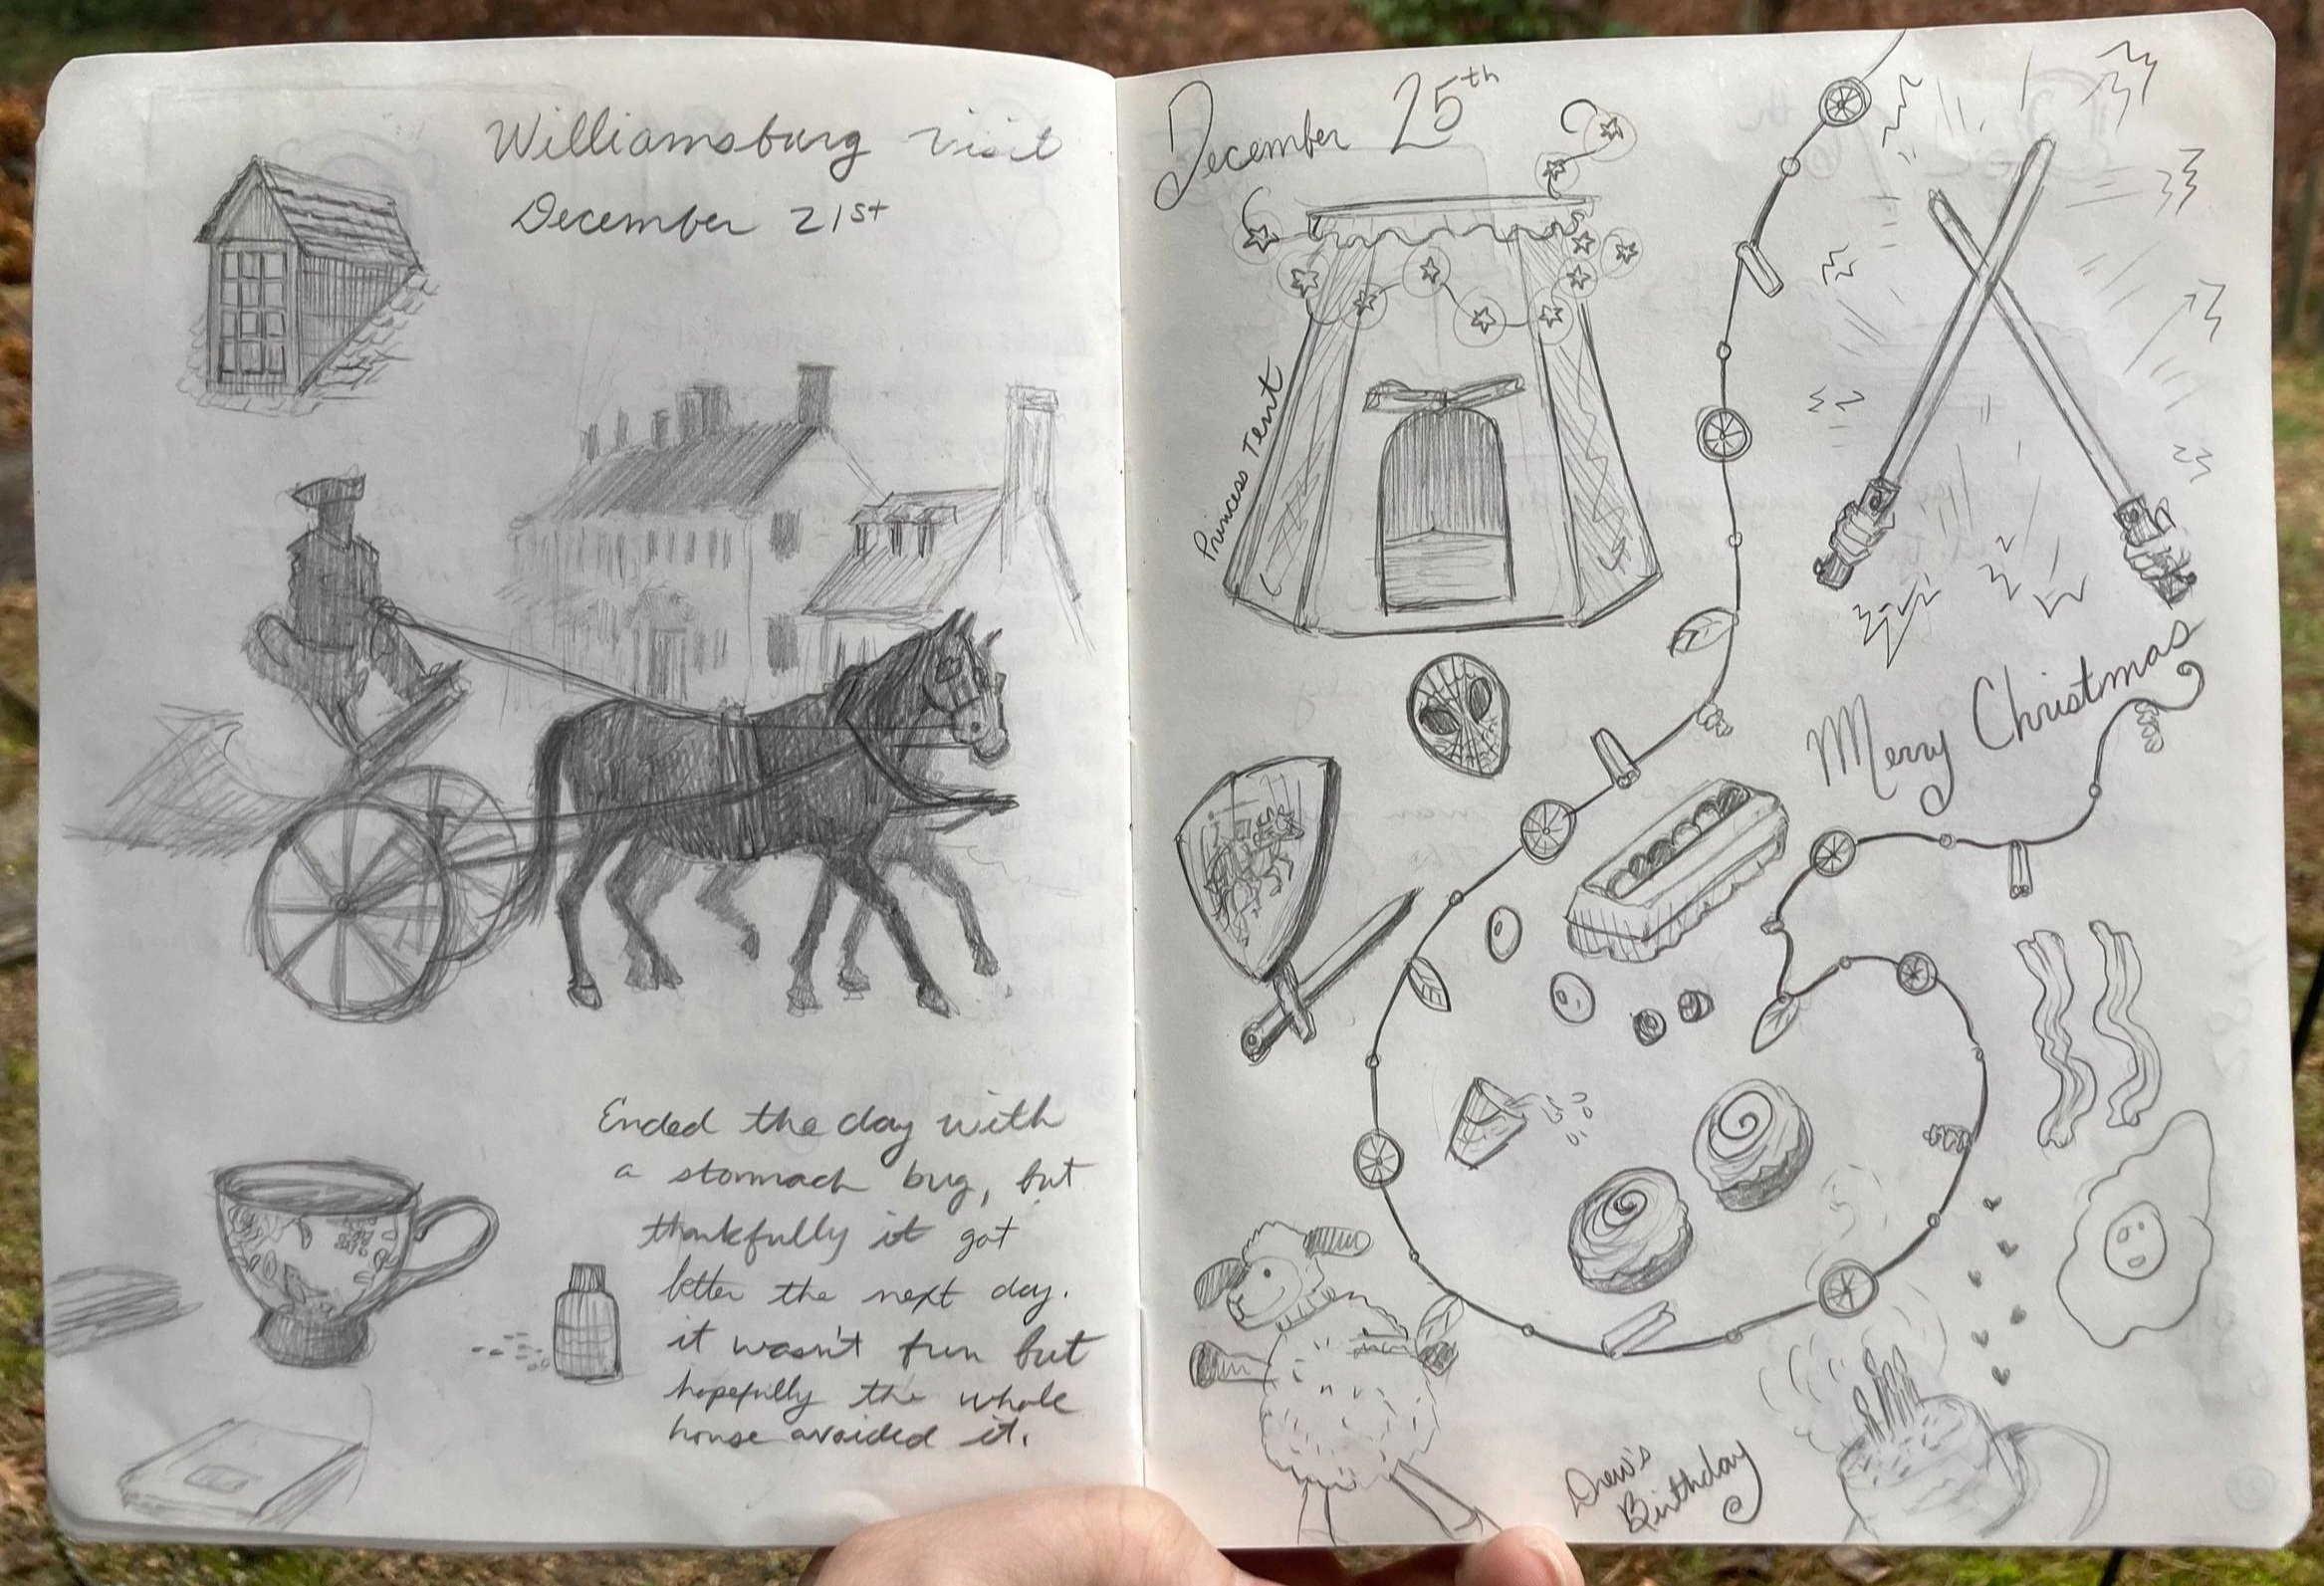 Williamsburg visit
December 21st
Ended the day with
a stomach bug, but
thankfully it got
better the next day.
it wasn't fun but
hopefully the whole
house avoided it.
December 25th
Princess Tent
Merry Christmas
Drew's
Birthday